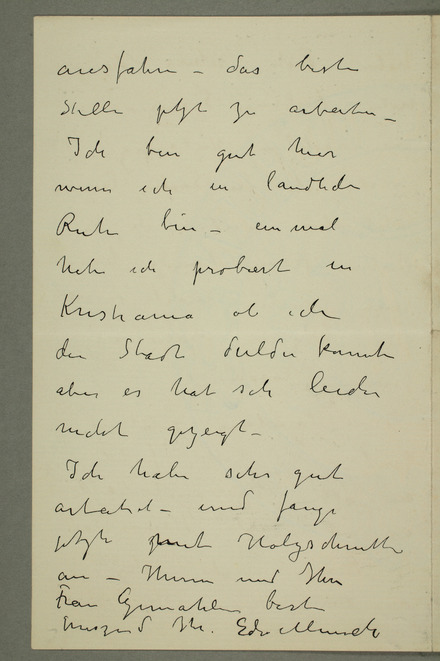 ausfahren – das beste
Stelle jetzt zu arbeiten –
Ich bin gut hier
wenn ich in landliche
Ruhe bin – einmal
habe ich probiert in
Kristiania ob ich
die Stadt dulden konnte
aber es hat sich leider
nicht gezeigt –
Ich habe sehr gut
arbeitet – und fange
jetzt mit Holzschnitte
an – Ihnen und Ihre
Frau Gemahlin beste
Ihr. Edv Munch